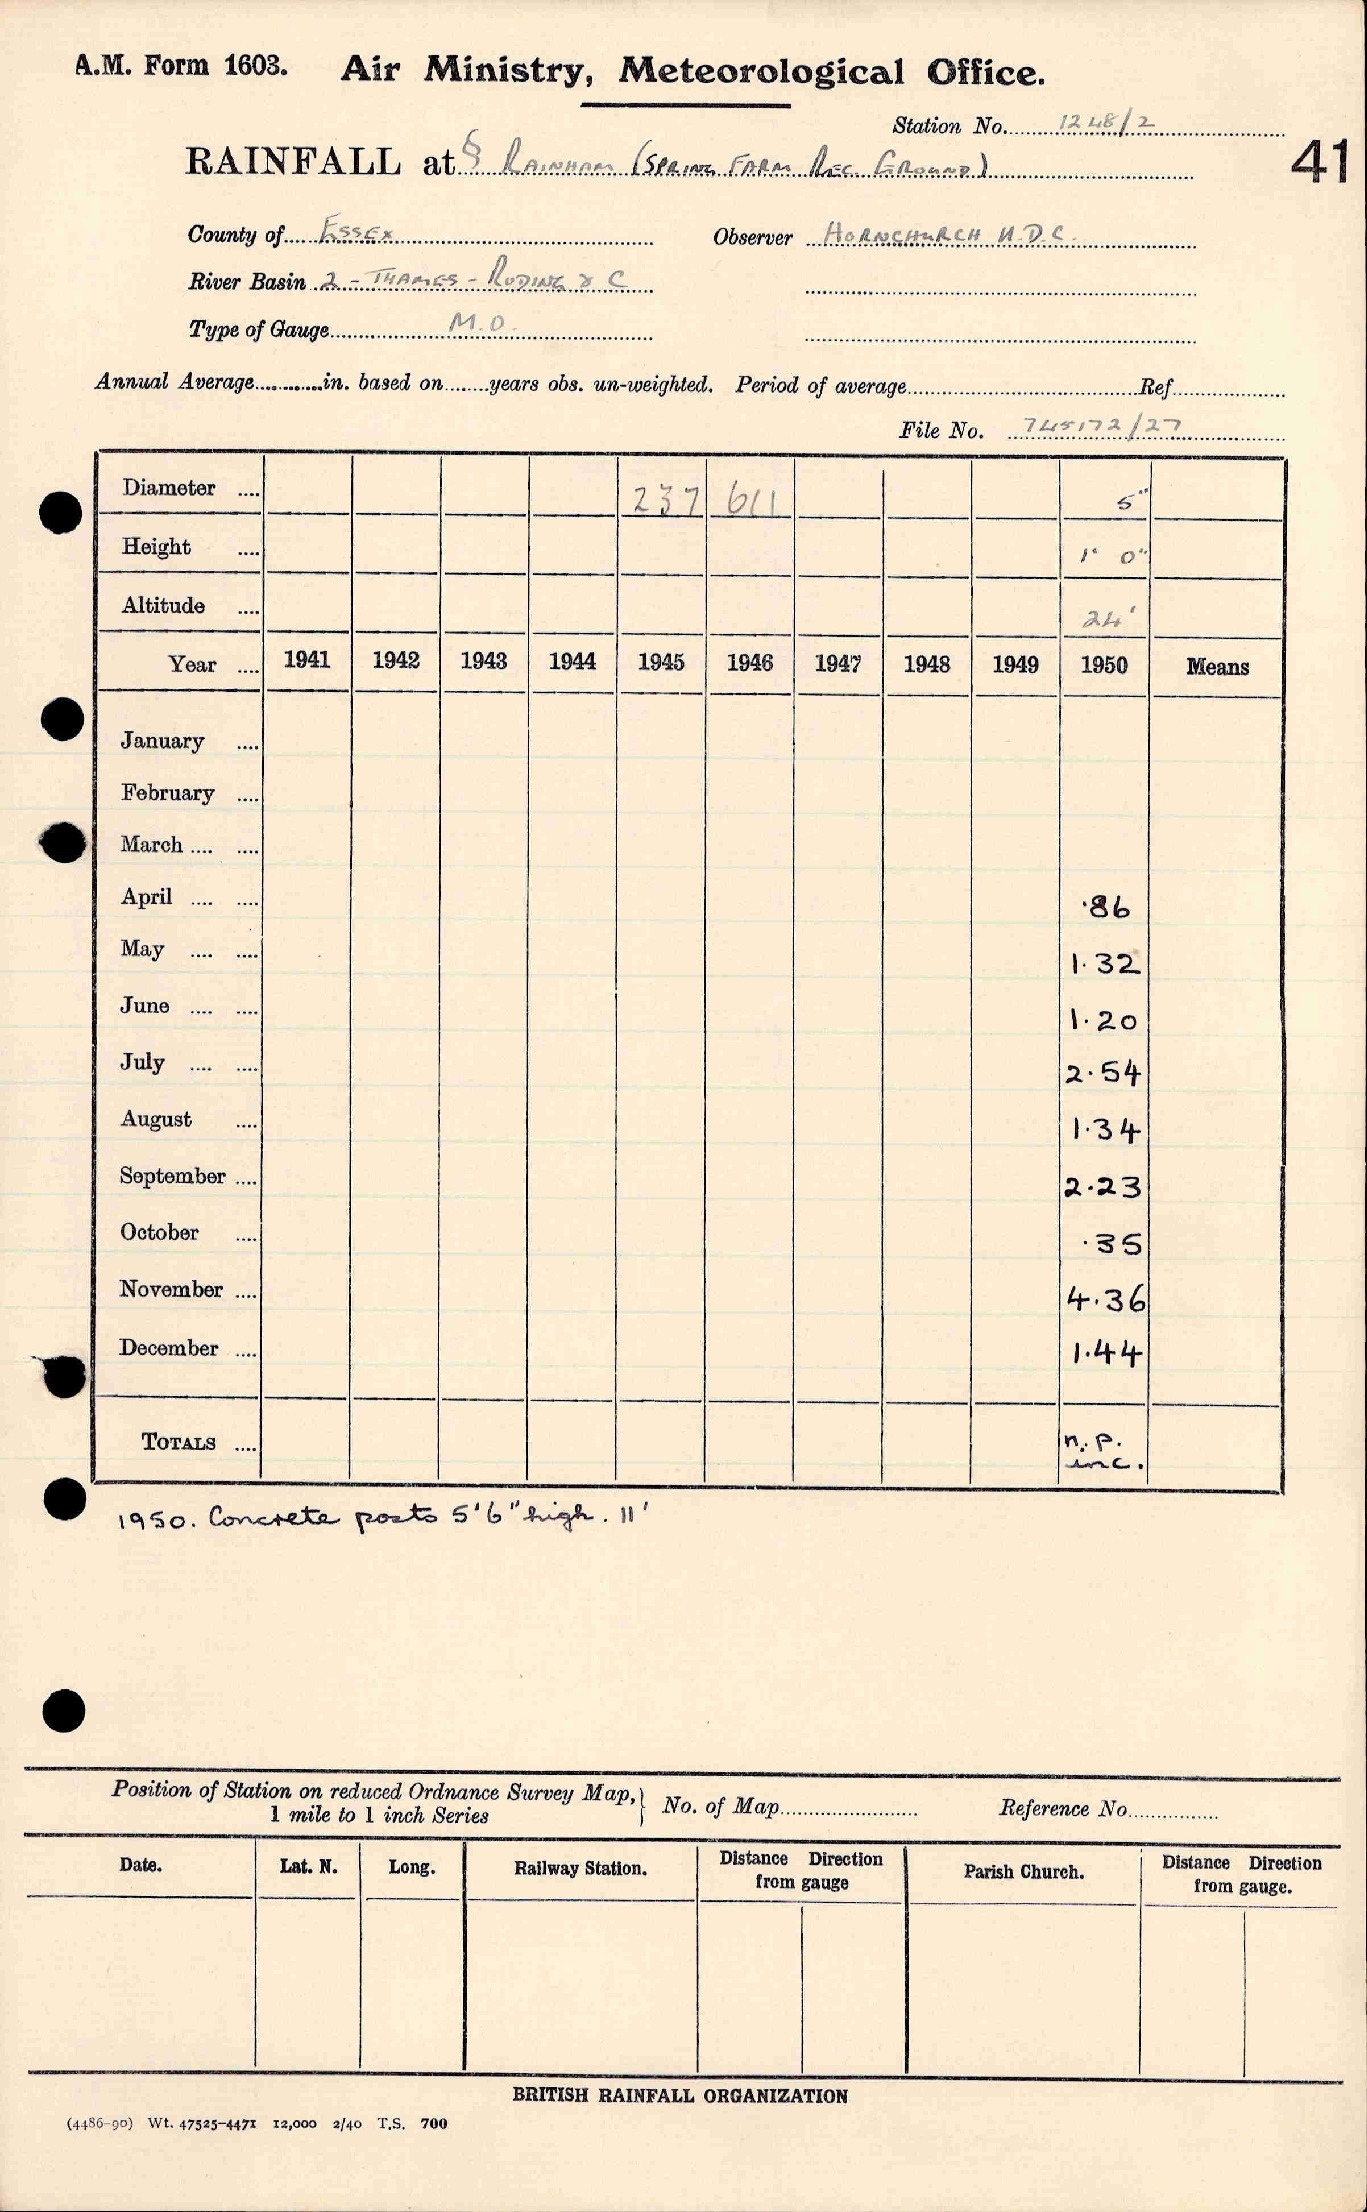 A.M. Form 1603. Air Ministry, Meteorological Office.
Station No. 1248/2
RAINFALL at § RAINHAM (SPRING FARM REC. GROUND)
41
County of ESSEX Observer HORNCHURCH U.D.C.
River Basin 2 - THAMES - RODING & C
Type of Gauge M.O.
Annual Average............in. based on........years obs. un-weighted. Period of average........Ref........
File No. 745172/27
Diameter .... 237 611 5"
Height .... 1' 0"
Altitude .... 24'
Year .... 1941 1942 1943 1944 1945 1946 1947 1948 1949 1950 Means
January ....
February ....
March .... ....
April .... .... ·86
May .... .... 1·32
June .... .... 1·20
July .... .... 2·54
August .... 1·34
September .... 2·23
October .... ·35
November .... 4·36
December .... 1·44
TOTALS .... n.p. inc.
1950. Concrete posts 5'6" high. 11'
Position of Station on reduced Ordnance Survey Map, } No. of Map........ Reference No........
1 mile to 1 inch Series
Date. Lat. N. Long. Railway Station. Distance Direction from gauge Parish Church. Distance Direction from gauge.
BRITISH RAINFALL ORGANIZATION
(4486-90) Wt. 47525-4471 12,000 2/40 T.S. 700